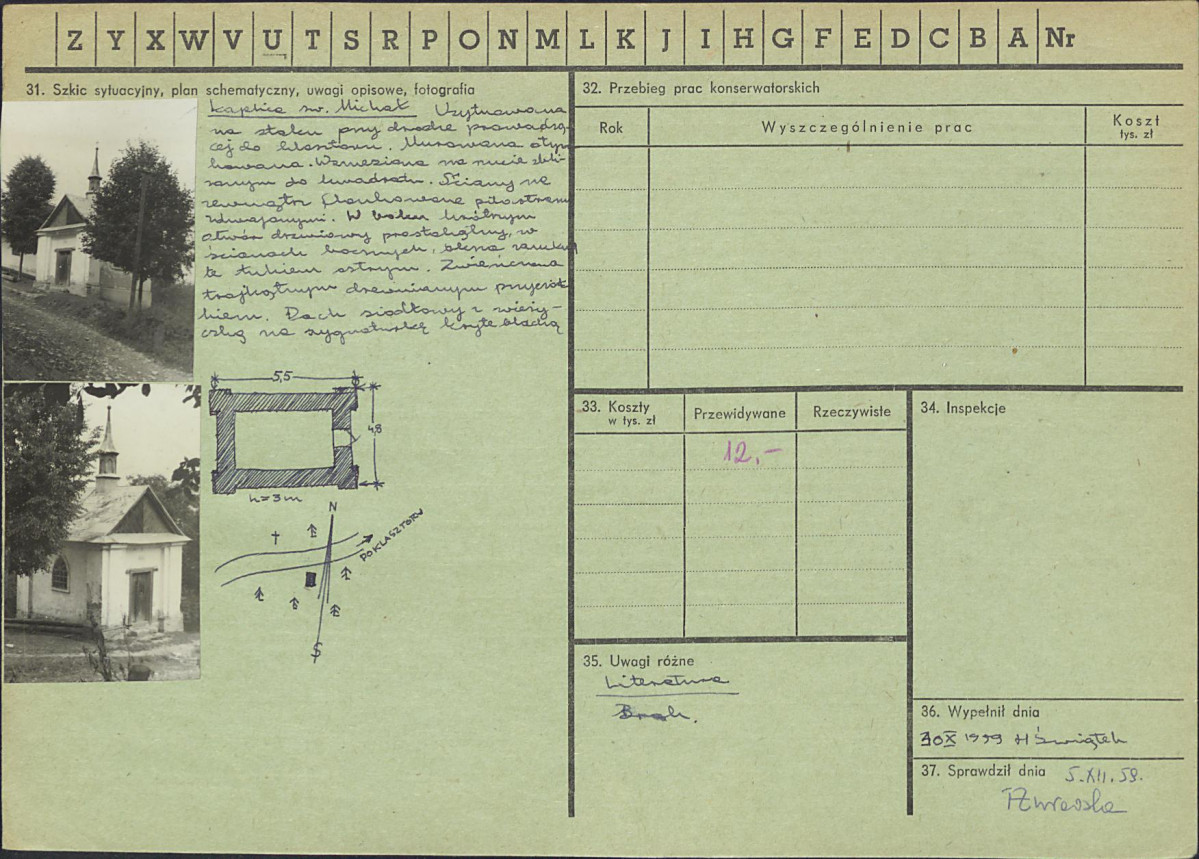 Z Y X W V U T S R P O N M L K J I H G F E D C B A Nr
31. Szkic sytuacyjny, plan schematyczny, uwagi opisowe, fotografia
Kaplica św. Michał Usytuowana
na stoku przy drodze prowadzą-
cej do klasztoru. Murowana otyn-
kowana. Wzniesiona na rzucie zbli-
żonym do kwadratu. Ściany na
zewnątrz flankowane pilastrami
zdwojonymi. W boku krótszym
otwór drzwiowy prostokątny, w
ścianach bocznych, okna zamknię
te łukiem ostrym. Zwieńczona
trójkątnym drewnianym przyczół
kiem. Dach siodłowy z wieży-
czką na sygnaturkę kryte blachą
5,5
4,8
h=3m
N
DO KLASZTORU
S
32. Przebieg prac konserwatorskich
Rok
Wyszczególnienie prac
Koszt
tys. zł
33. Koszty
w tys. zł
Przewidywane
Rzeczywiste
12,-
34. Inspekcje
35. Uwagi różne
Literatura
Brak.
36. Wypełnił dnia
30 X 1959 H Świątek
37. Sprawdził dnia 5.XII.59.